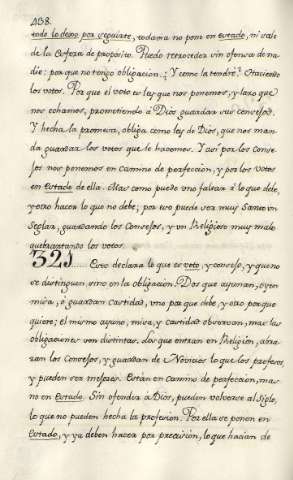 438.
todo lo dexo por seguirte, todavia no pone en estado, ni sale
de la Esfera de proposito. Puedo retroceder sin ofensa de na-
die: por que no tengo obligacion. ¿Y como la tendré? Haciendo
los votos. Por que el voto es ley que nos ponemos, y laxo que
nos echamos, prometiendo à Dios guardar sus consejos.
Y hecha la promesa, obliga como ley de Dios, que nos man-
da guardar los votos que le hacemos. Y asi por los Conse-
jos nos ponemos en camino de perfeccion, y por los votos
en Estado de ella. Mas como puede uno faltar à lo que debe,
y otro hacer lo que no debe; por eso puede ser muy Santo un
Seglar, guardando los Consejos, y un Religioso muy malo
quebrantando los votos.
321 Esto declara lo que es voto, y consejo, y que no
se distinguen sino en la obligacion. Dos que ayunan, oyen
misa, ò guardan castidad, uno por que debe, y otro por que
quiere; el mismo ayuno, misa, y castidad observan, mas las
obligaciones son distintas. Los que entran en Religion, abra-
zan los Consejos, y guardan de Novicios lo que los profesos,
y pueden ser mejores. Están en camino de perfeccion, mas
no en Estado. Sin ofender à Dios, pueden volverse al siglo,
lo que no pueden hecha la profesion. Por ella se ponen en
Estado, y ya deben hacer por precision, lo que hacian de